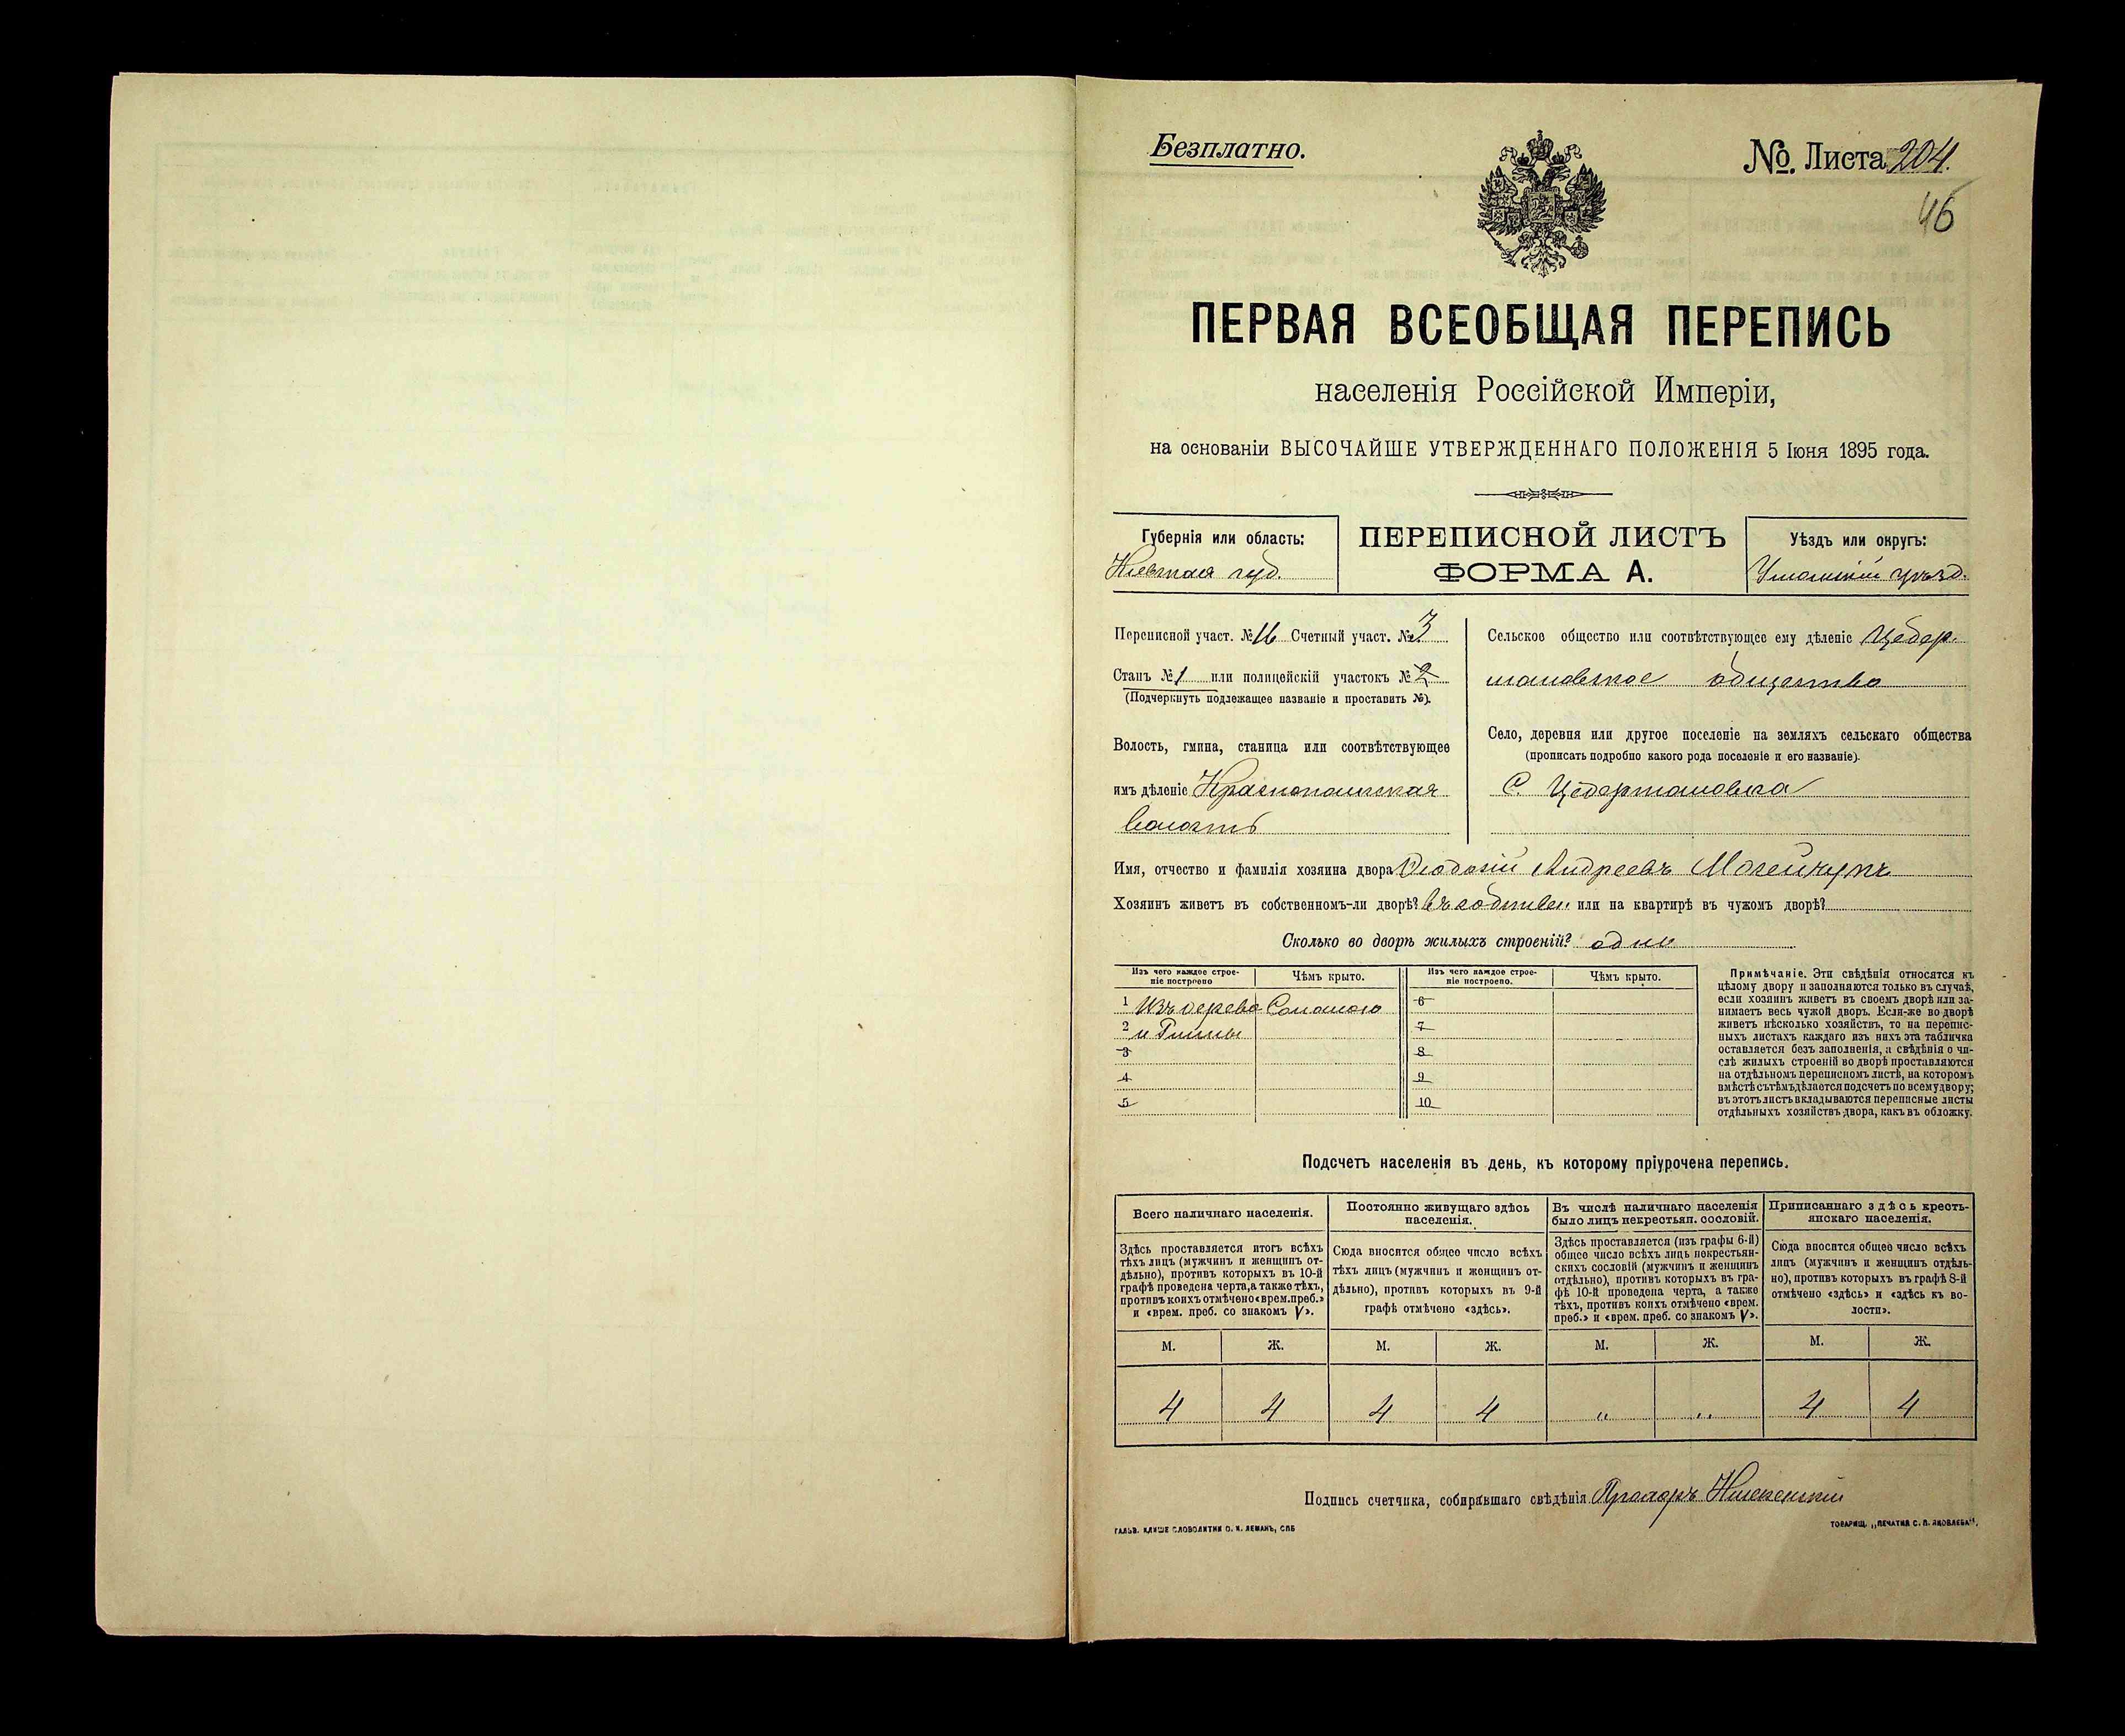 Безплатно.
№. Листа 204.
46
ПЕРВАЯ ВСЕОБЩАЯ ПЕРЕПИСЬ
населенія Россійской Имперіи,
на основаніи ВЫСОЧАЙШЕ УТВЕРЖДЕННАГО ПОЛОЖЕНІЯ 5 Іюня 1895 года.
Губернія или область:
Кіевская губ.
ПЕРЕПИСНОЙ ЛИСТЪ
ФОРМА А.
Уѣздъ или округъ:
Уманскій уѣзд.
Переписной участ. № Счетный участ. № 3
Станъ № 1 или полицейскій участокъ № 2
(Подчеркнуть подлежащее названіе и проставить №).
Волость, гмина, станица или соотвѣтствующее
имъ дѣленіе Краснопольская
волость
Сельское общество или соотвѣтствующее ему дѣленіе Цебер-
мановское общество
Село, деревня или другое поселеніе на земляхъ сельскаго общества
(прописать подробно какого рода поселеніе и его названіе).
С. Цебермановка
Имя, отчество и фамилія хозяина двора Ѳеодосій Андреевъ Мосейчукъ
Хозяинъ живетъ въ собственномъ-ли дворѣ? въ собствен. или на квартирѣ въ чужомъ дворѣ?
Сколько во дворѣ жилыхъ строеній? одно
Изъ чего каждое строе-
ніе построено
Чѣмъ крыто.
1 Изъ дерева Соломою
2 и Глины
3
4
5
Изъ чего каждое строе-
ніе построено.
Чѣмъ крыто.
6
7
8
9
10
Примѣчаніе. Эти свѣдѣнія относятся къ
цѣлому двору и заполняются только въ случаѣ,
если хозяинъ живетъ въ своемъ дворѣ или за-
нимаетъ весь чужой дворъ. Если-же во дворѣ
живетъ нѣсколько хозяйствъ, то на перепис-
ныхъ листахъ каждаго изъ нихъ эта табличка
оставляется безъ заполненія, а свѣдѣнія о чи-
слѣ жилыхъ строеній во дворѣ проставляются
на отдѣльномъ переписномъ листѣ, на которомъ
вмѣстѣ съ тѣмъ дѣлается подсчетъ по всему двору;
въ этотъ листъ вкладываются переписные листы
отдѣльныхъ хозяйствъ двора, какъ въ обложку.
Подсчетъ населенія въ день, къ которому пріурочена перепись.
Всего наличнаго населенія.
Здѣсь проставляется итогъ всѣхъ
тѣхъ лицъ (мужчинъ и женщинъ от-
дѣльно), противъ которыхъ въ 10-й
графѣ проведена черта, а также тѣхъ,
противъ коихъ отмѣчено «врем. преб.»
и «врем. преб. со знакомъ V».
Постоянно живущаго здѣсь
населенія.
Сюда вносится общее число всѣхъ
тѣхъ лицъ (мужчинъ и женщинъ от-
дѣльно), противъ которыхъ въ 9-й
графѣ отмѣчено «здѣсь».
Въ числѣ наличнаго населенія
было лицъ некрестьян. сословій.
Здѣсь проставляется (изъ графы 6-й)
общее число всѣхъ лицъ некрестьян-
скихъ сословій (мужчинъ и женщинъ
отдѣльно), противъ которыхъ въ гра-
фѣ 10-й проведена черта, а также
тѣхъ, противъ коихъ отмѣчено «врем.
преб.» и «врем. преб. со знакомъ V».
Приписаннаго здѣсь кресть-
янскаго населенія.
Сюда вносится общее число всѣхъ
лицъ (мужчинъ и женщинъ отдѣль-
но), противъ которыхъ въ графѣ 8-й
отмѣчено «здѣсь» и «здѣсь къ во-
лости».
М. Ж. М. Ж. М. Ж. М. Ж.
4 4 4 4 „ „ 4 4
Подпись счетчика, собиравшаго свѣдѣнія
ГАЛЬВ. КЛИШЕ СЛОВОЛИТНИ О. И. ЛЕМАНЪ, СПБ
ТОВАРИЩ. „ПЕЧАТНЯ С. П. ЯКОВЛЕВА“.